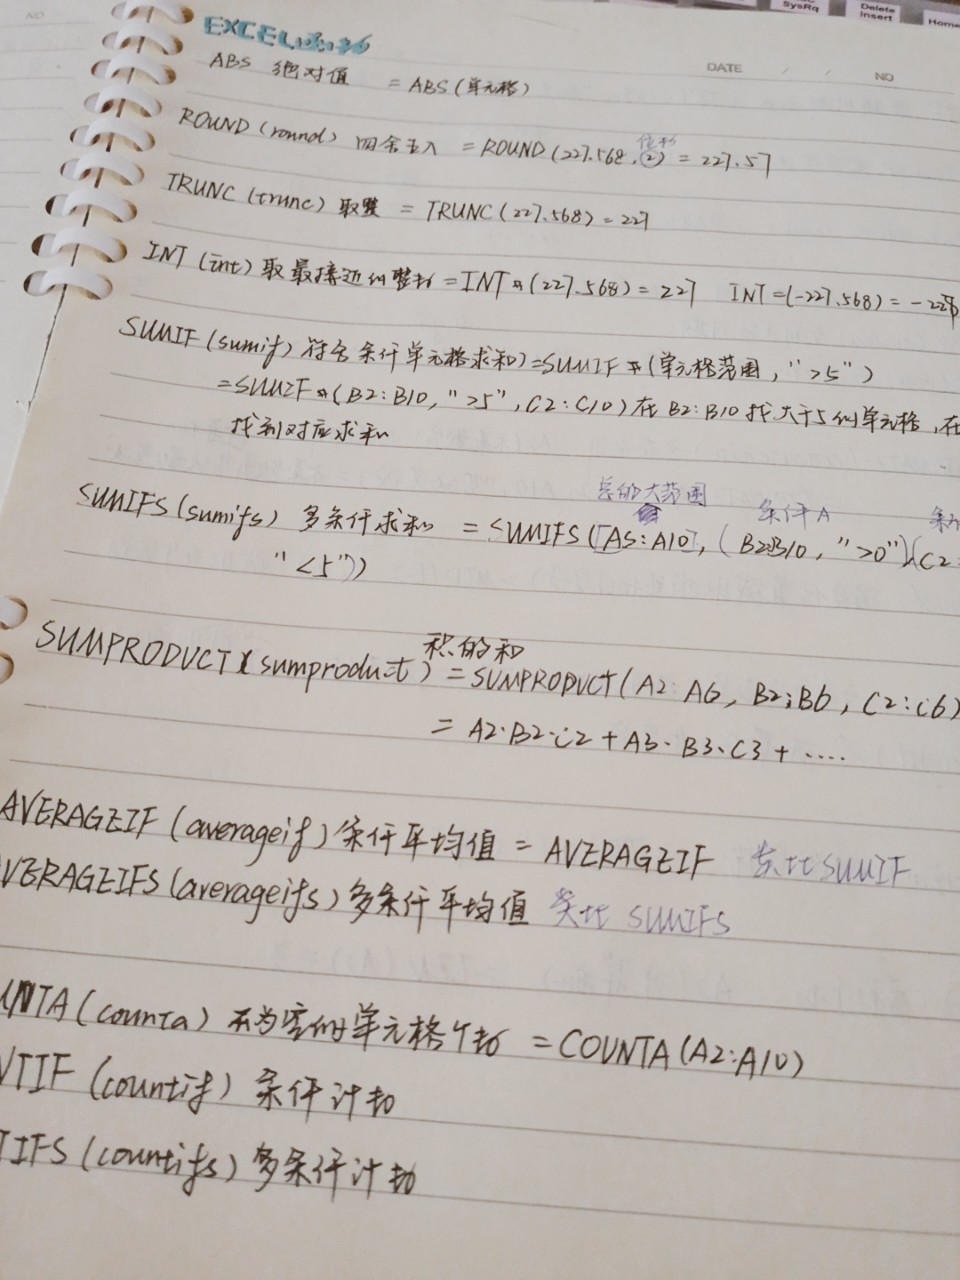 SysRq
Delete
Insert
Home
NO
EXCEL函数
DATE / / NO
ABS 绝对值 = ABS(单元格)
位数
ROUND(round) 四舍五入 = ROUND(227.568,②) = 227.57
TRUNC(trunc) 取整 = TRUNC(227.568) = 227
INT(int) 取最接近的整数 = INT(227.568) = 227 INT=(-227.568) = -228
SUMIF(sumif) 符合条件单元格求和) = SUMIF(单元格范围, ">5")
= SUMIF(B2:B10, ">5", C2:C10) 在B2:B10找大于5的单元格,在
找到对应求和
总的大范围 条件A 条件
SUMIFS(sumifs) 多条件求和 = SUMIFS([A5:A10], (B2:B10, ">0")(C2:
"<5"))
积的和
SUMPRODUCT(sumproduct) = SUMPRODUCT(A2:A6, B2:B6, C2:C6)
= A2·B2·C2 + A3·B3·C3 + ....
AVERAGEIF(averageif) 条件平均值 = AVERAGEIF 类比SUMIF
VERAGEIFS(averageifs) 多条件平均值 类比 SUMIFS
UNTA(counta) 不为空的单元格个数 = COUNTA(A2:A10)
NTIF(countif) 条件计数
TIFS(countifs) 多条件计数